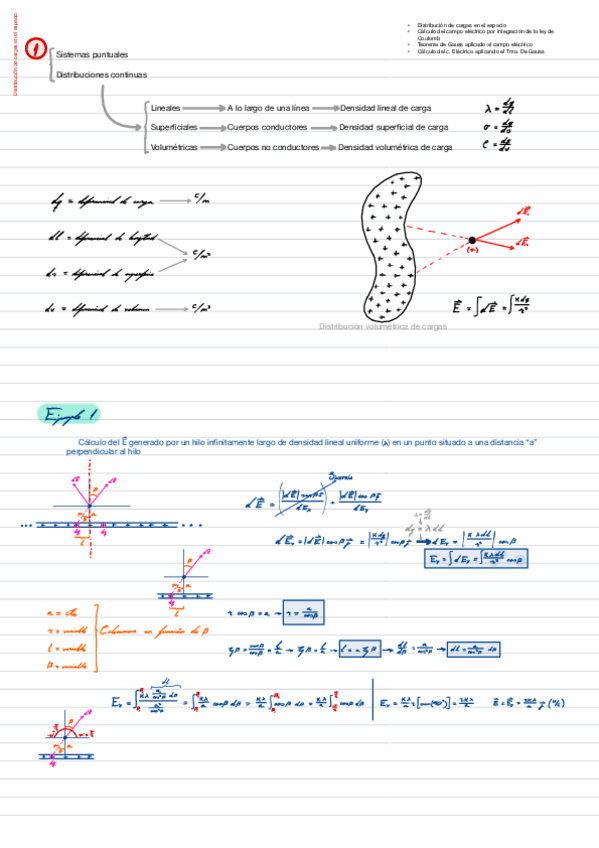 Distribución de cargas en el espacio
• Distribución de cargas en el espacio
• Cálculo del campo eléctrico por integración de la ley de Coulomb
• Teorema de Gauss aplicado al campo eléctrico
• Cálculo del c. Eléctrico aplicando el Tma. De Gauss
1
Sistemas puntuales
Distribuciones continuas
Lineales → A lo largo de una línea → Densidad lineal de carga λ = dq/dl
Superficiales → Cuerpos conductores → Densidad superficial de carga σ = dq/ds
Volumétricas → Cuerpos no conductores → Densidad volumétrica de carga ρ = dq/dv
dq = diferencial de carga → C/m
dl = diferencial de longitud
→ C/m²
ds = diferencial de superficie
dv = diferencial de volumen → C/m³
dE
(+)
dE
E = ∫dE = ∫ K dq/r²
Distribución volumétrica de cargas
Ejemplo 1
Cálculo del E generado por un hilo infinitamente largo de densidad lineal uniforme (λ) en un punto situado a una distancia "a"
perpendicular al hilo
Simetría
dq = λ dl
Eᵧ = ∫dEᵧ = ∫ K λ dl/r² cos β
a = cte
r = variable
l = variable
β = variable
Colocamos en función de β
r cos β = a → r = a/cos β